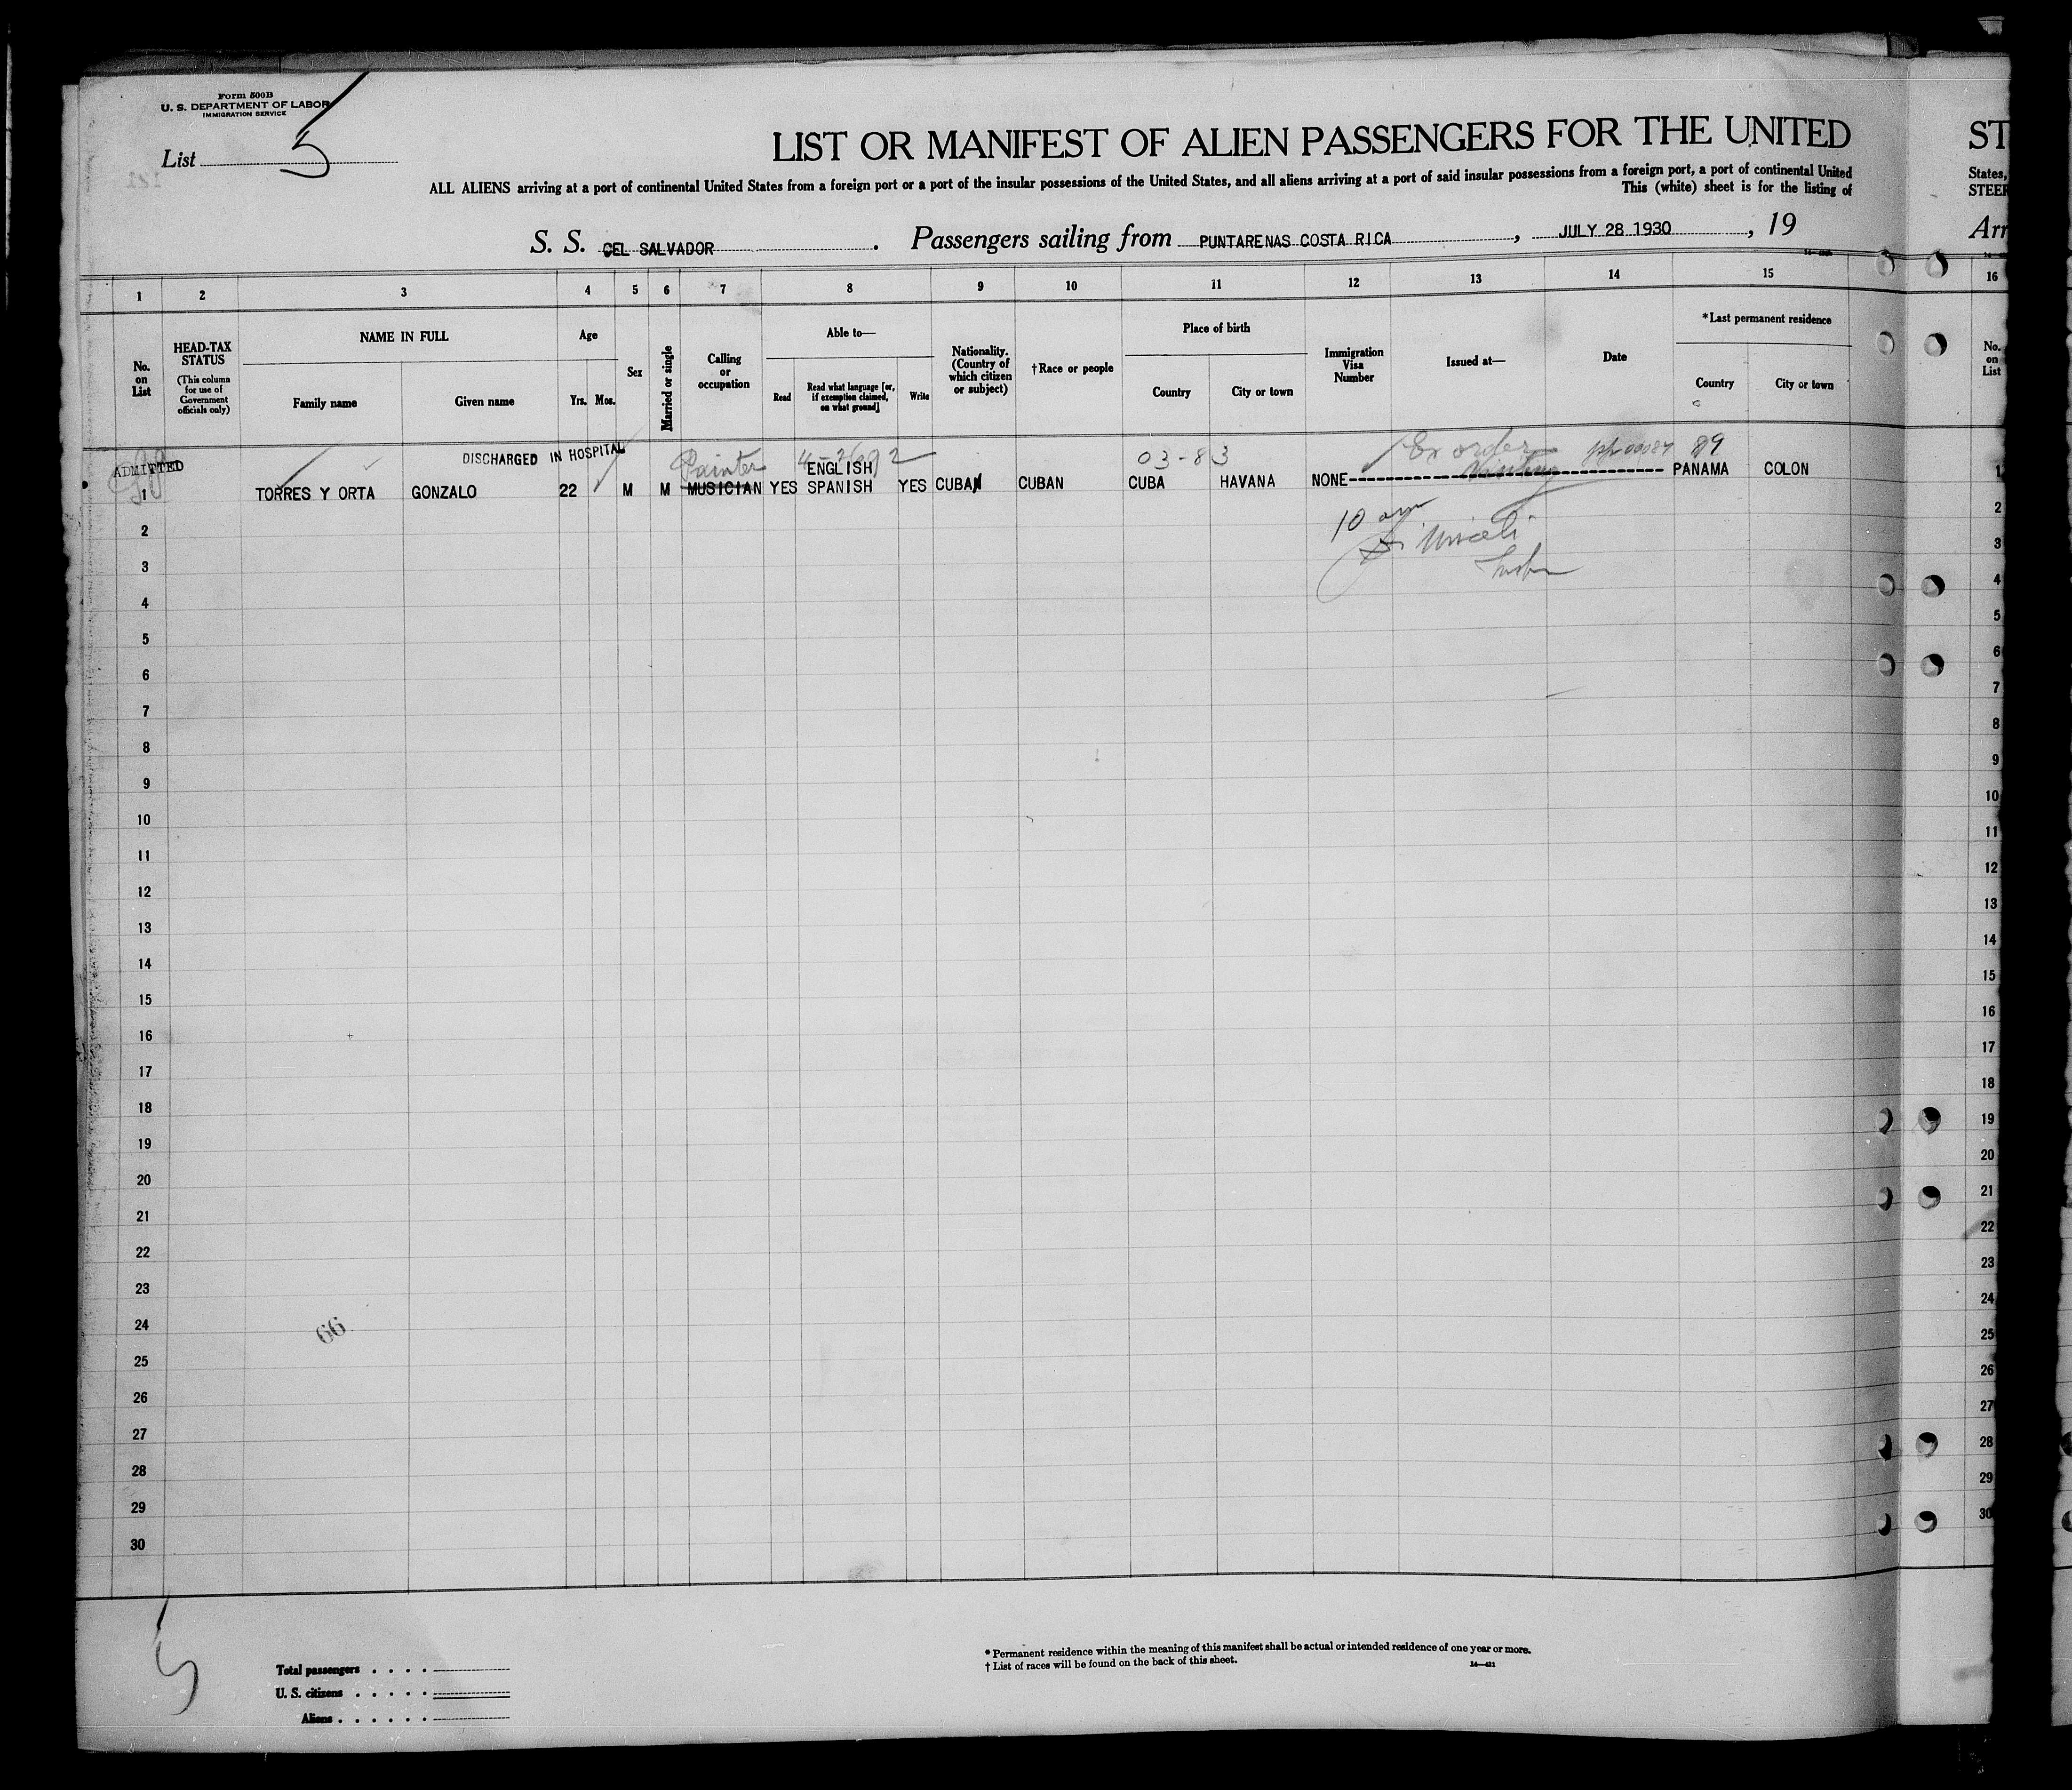 Form 500B
U. S. DEPARTMENT OF LABOR
IMMIGRATION SERVICE
List 5
LIST OR MANIFEST OF ALIEN PASSENGERS FOR THE UNITED
ST
ALL ALIENS arriving at a port of continental United States from a foreign port or a port of the insular possessions of the United States, and all aliens arriving at a port of said insular possessions from a foreign port, a port of continental United
States,
This (white) sheet is for the listing of
STEER
S. S. CEL SALVADOR. Passengers sailing from PUNTARENAS COSTA RICA, JULY 28 1930, 19
Arr
1 2 3 4 5 6 7 8 9 10 11 12 13 14 15 16
No. on List
HEAD-TAX STATUS
(This column for use of Government officials only)
NAME IN FULL
Family name
Given name
Age
Yrs. Mos.
Sex
Married or single
Calling or occupation
Able to—
Read
Read what language [or, if exemption claimed, on what ground]
Write
Nationality. (Country of which citizen or subject)
†Race or people
Place of birth
Country
City or town
Immigration Visa Number
Issued at—
Date
*Last permanent residence
Country
City or town
No. on List
ADMITTED DISCHARGED IN HOSPITAL Painter ENGLISH 03-83 Ex order 89
1 TORRES Y ORTA GONZALO 22 M M MUSICIAN YES SPANISH YES CUBAN CUBAN CUBA HAVANA NONE PANAMA COLON 1
10 am
2 2
3 3
4 4
5 5
6 6
7 7
8 8
9 9
10 10
11 11
12 12
13 13
14 14
15 15
16 16
17 17
18 18
19 19
20 20
21 21
22 22
23 23
24 24
66
25 25
26 26
27 27
28 28
29 29
30 30
5
Total passengers
U. S. citizens
Aliens
* Permanent residence within the meaning of this manifest shall be actual or intended residence of one year or more.
† List of races will be found on the back of this sheet.